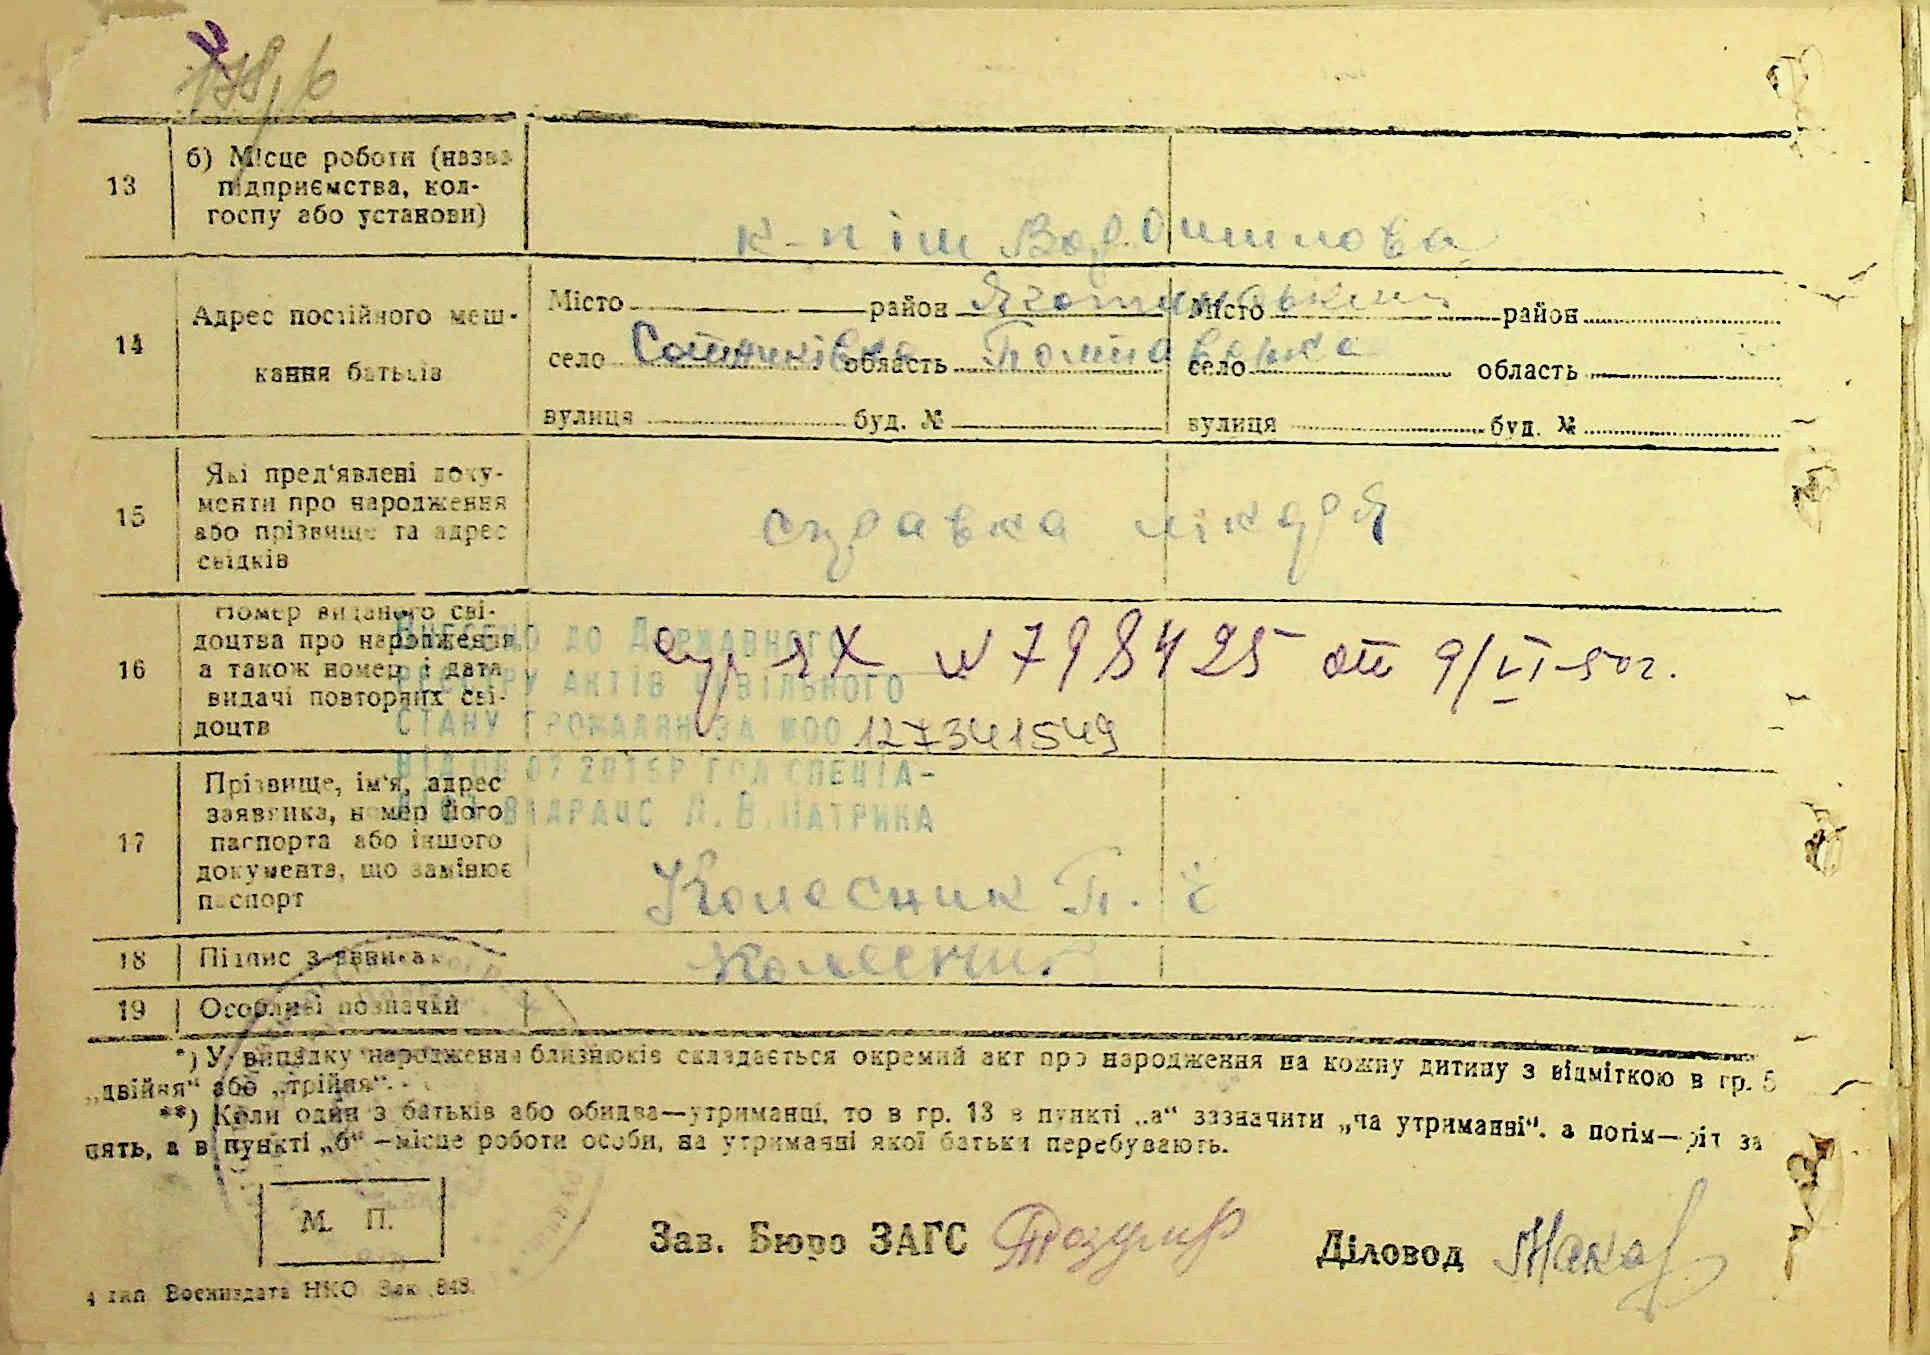 13
б) Місце роботи (назва
підприємства, кол-
госпу або установи)
к-п ім Ворошилова
14
Адрес постійного меш-
кання батьків
Місто район Яготинський Місто район
село Сотниківка область Полтавська село область
вулиця буд. № вулиця буд. №
15
Які пред'явлені доку-
менти про народження
або прізвище та адрес
свідків
справка лікаря
16
Номер виданого сві-
доцтва про народження
а також номер і дата
видачі повторних сві-
доцтв
ЯХ № 798425 от 9/VI-50г.
Внесено до Державного
реєстру актів цивільного
стану громадян за №00 127341549
спеціа-
ВДРАЦС
17
Прізвище, ім'я, адрес
заявника, номер його
паспорта або іншого
документа, що замінює
паспорт
Колесник П.
18
Підпис заявника
Колесник
19
Особливі позначки
*) У випадку народження близнюків складається окремий акт про народження на кожну дитину з відміткою в гр. 5
„двійня“ або „трійня“.
**) Коли один з батьків або обидва—утриманці, то в гр. 13 в пункті „а“ зазначити „на утриманні“, а потім— за
нять, а в пункті „б“ —місце роботи особи, на утриманні якої батьки перебувають.
М. П.
Зав. Бюро ЗАГС
Діловод
4 тип Воениздата НКО Зак .848.